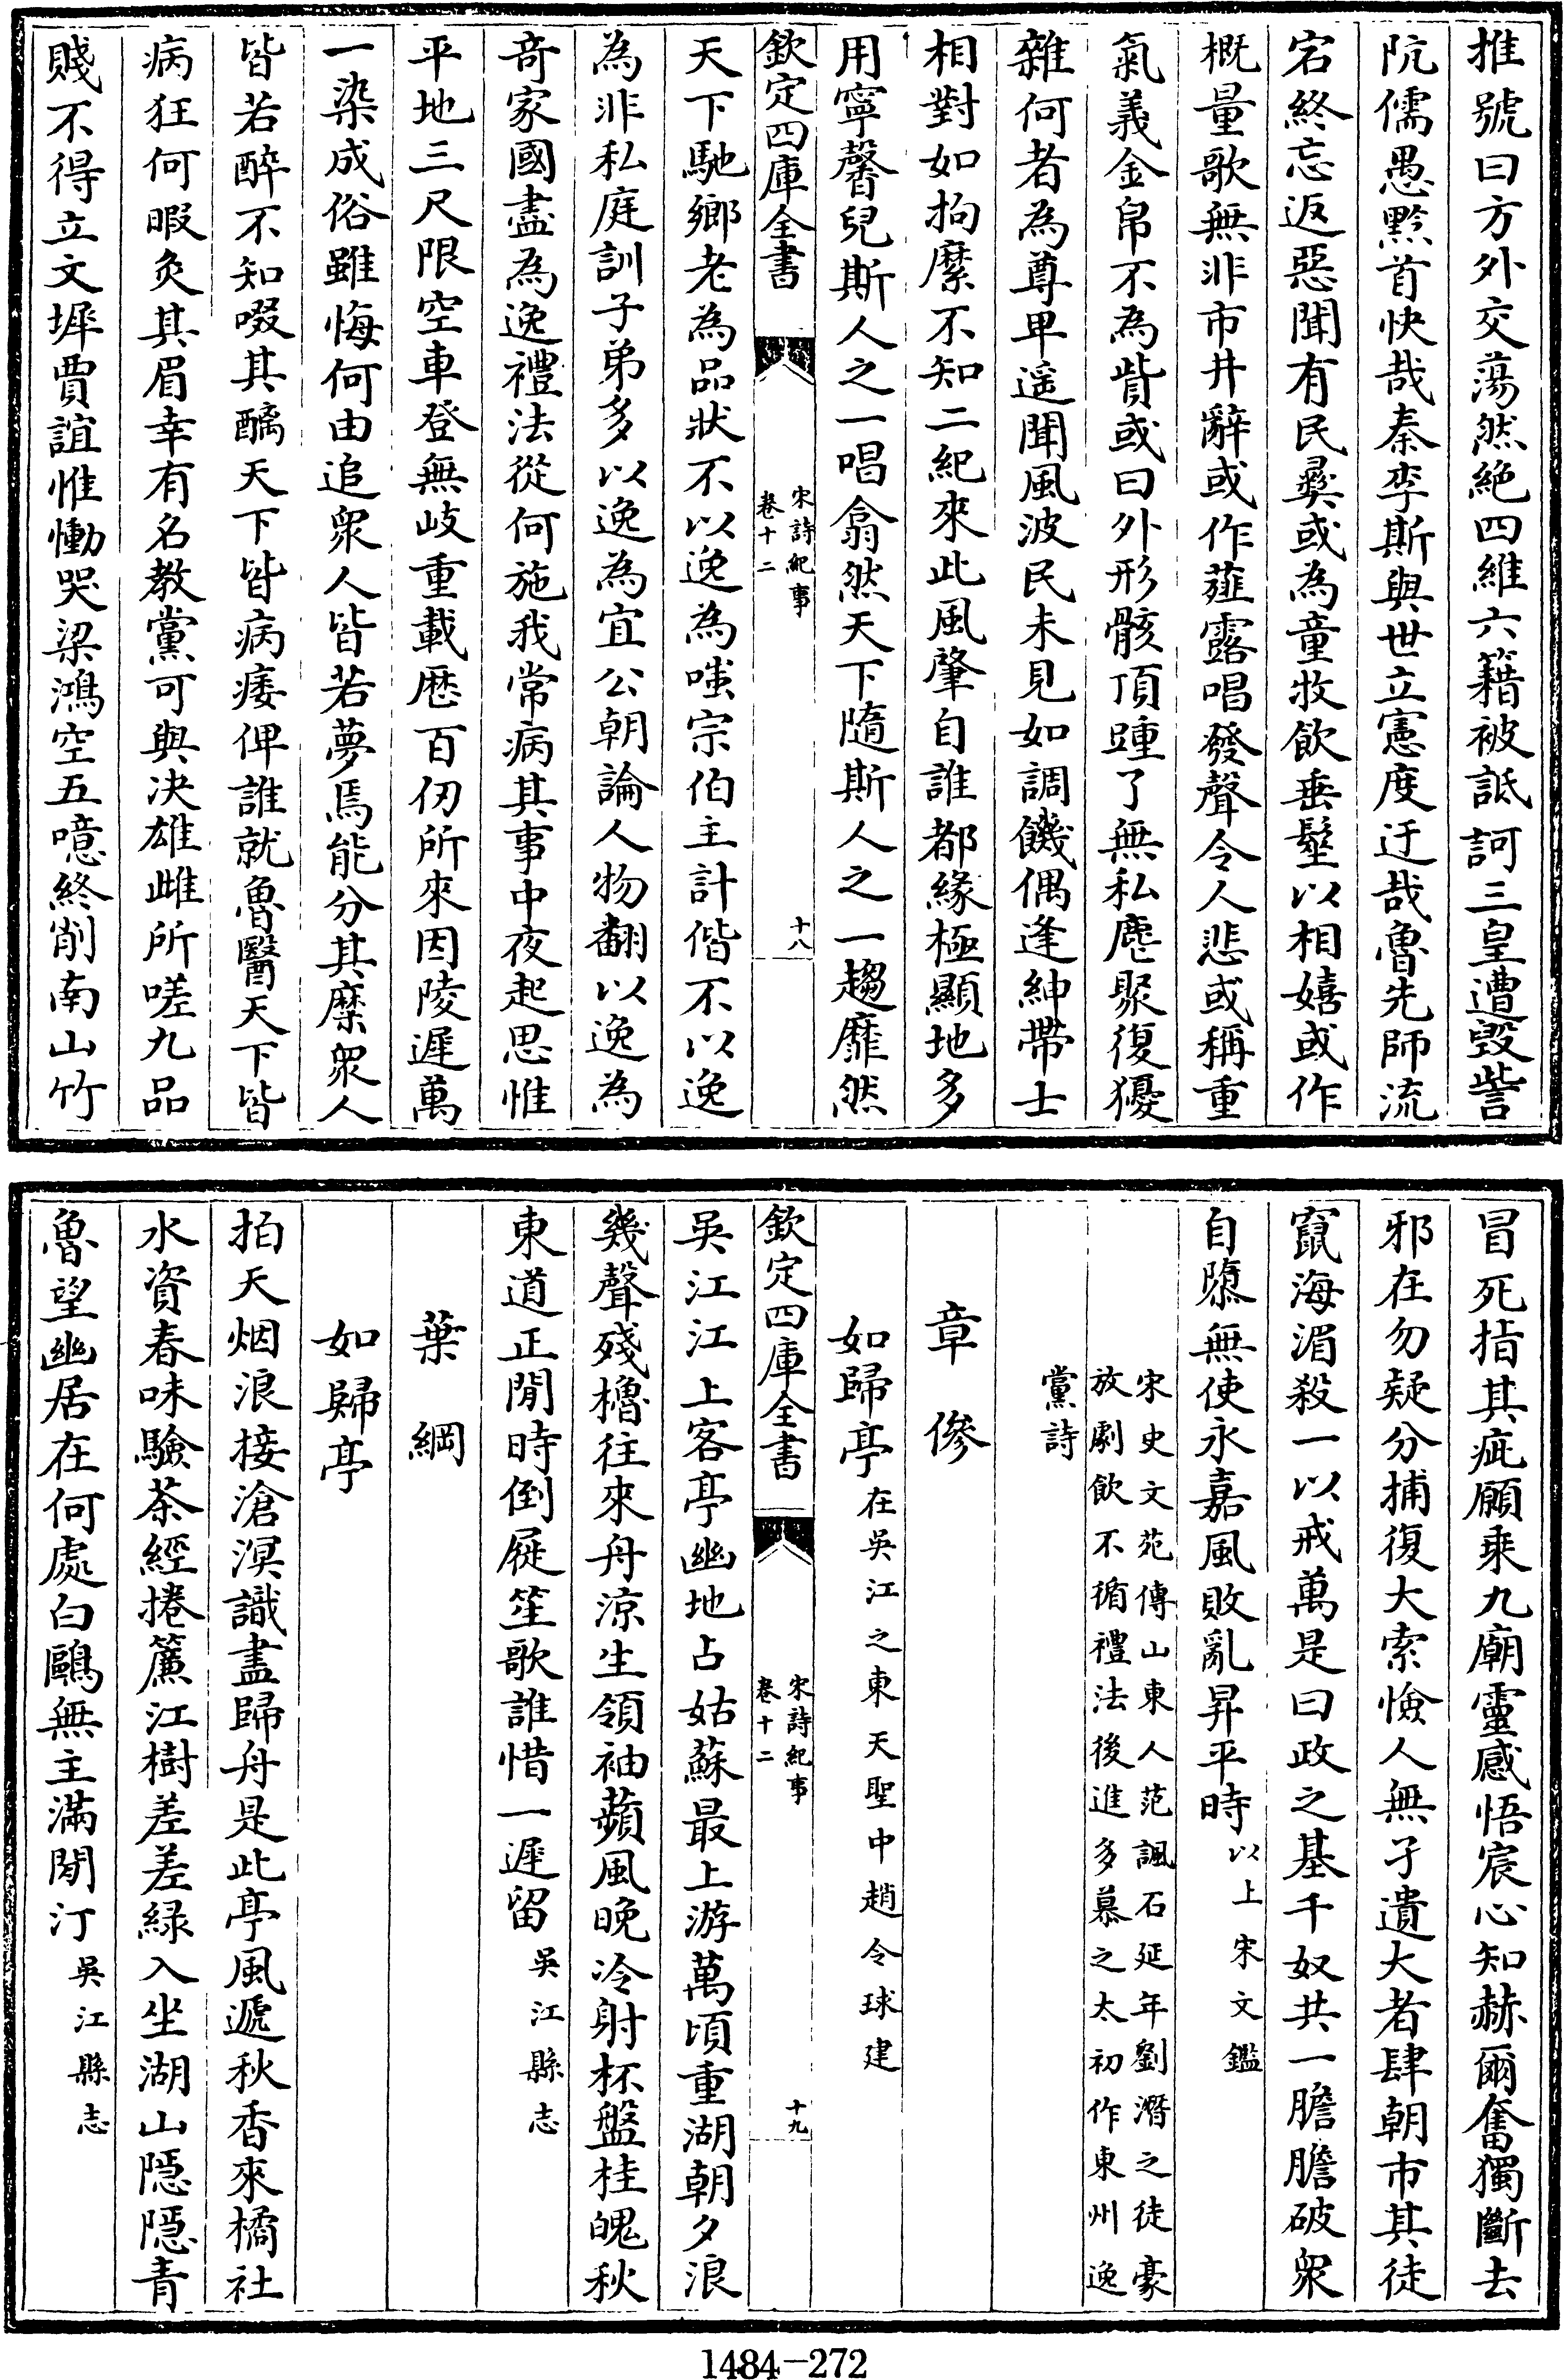 推號曰方外交蕩然絶四維六籍被詆訶三皇遭毁訾
阬儒愚黔首快哉秦李斯與世立憲度迂哉魯先師流
宕終忘返惡聞有民彞或為童牧飲垂髦以相嬉或作
概量歌無非市井辭或作薤露唱發聲令人悲或稱重
氣義金帛不為貲或曰外形骸頂踵了無私麀聚復獶
雜何者為尊卑遥聞風波民未見如調饑偶逢紳帶士
相對如拘縻不知二紀來此風肇自誰都緣極顯地多
用寧馨兒斯人之一唱翕然天下隨斯人之一趨靡然
欽定四庫全書
宋詩紀事
卷十二
十八
天下馳鄉老為品狀不以逸為嗤宗伯主計偕不以逸
為非私庭訓子弟多以逸為宜公朝論人物翻以逸為
奇家國盡為逸禮法從何施我常病其事中夜起思惟
平地三尺限空車登無岐重載厯百仞所來因陵遲萬
一染成俗雖悔何由追衆人皆若夢焉能分其糜衆人
皆若醉不知啜其醨天下皆病痿俾誰就魯醫天下皆
病狂何暇灸其眉幸有名教黨可與决雄雌所嗟九品
賤不得立文墀賈誼惟慟哭梁鴻空五噫終削南山竹
冒死指其疵願乘九廟靈感悟宸心知赫爾奮獨斷去
邪在勿疑分捕復大索憸人無孑遺大者肆朝市其徒
竄海湄殺一以戒萬是曰政之基千奴共一膽膽破衆
自隳無使永嘉風敗亂昇平時以上宋文鑑
宋史文苑傳山東人范諷石延年劉潛之徒豪
放劇飲不循禮法後進多慕之太初作東州逸
黨詩
章傪
如歸亭在吳江之東天聖中趙令球建
欽定四庫全書
宋詩紀事
卷十二
十九
吳江江上客亭幽地占姑蘇最上游萬頃重湖朝夕浪
幾聲殘櫓往來舟涼生領袖蘋風晚冷射杯盤桂魄秋
東道正閒時倒屣笙歌誰惜一遲留吳江縣志
葉綱
如歸亭
拍天烟浪接滄溟識盡歸舟是此亭風遞秋香來橘社
水資春味驗茶經捲簾江樹差差緑入坐湖山隠隠青
魯望幽居在何處白鷗無主滿閒汀吳江縣志
1484—272